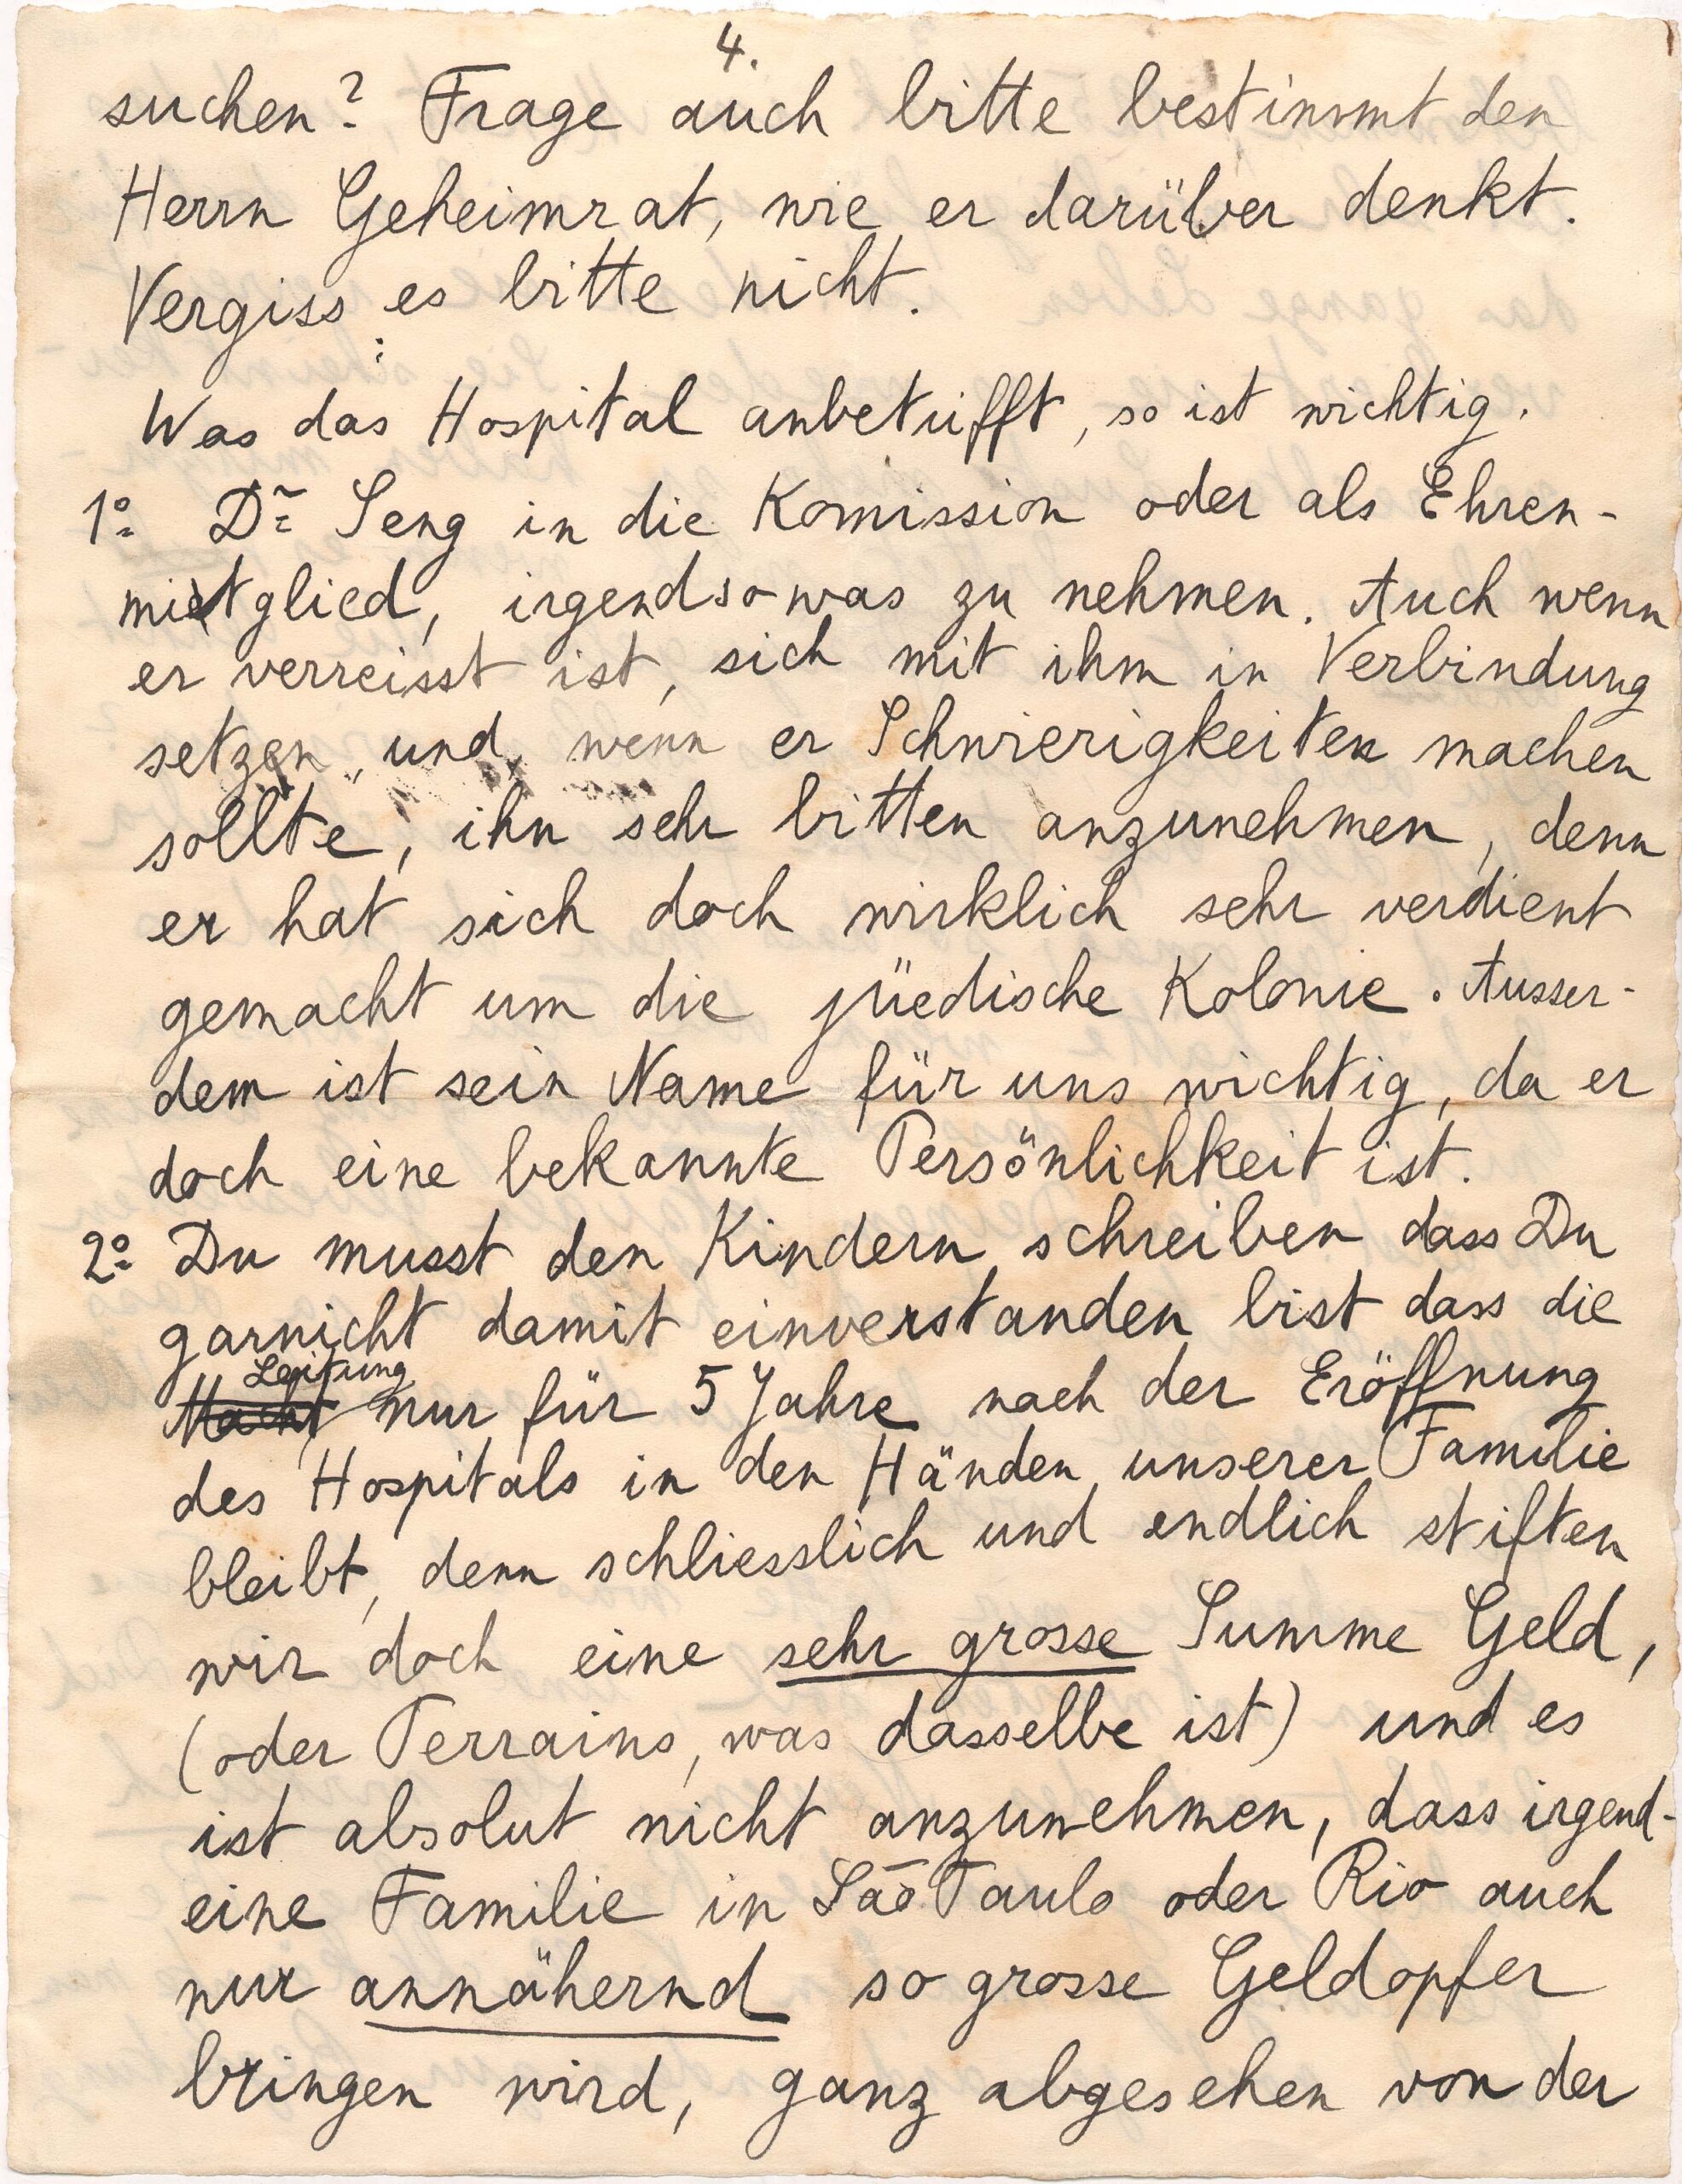 4.
suchen? Frage auch bitte bestimmt den
Herrn Geheimrat, wie er darüber denkt.
Vergiss es bitte nicht.
Was das Hospital anbetrifft, so ist wichtig:
1º Dr Seng in die Komission oder als Ehren-
mitglied, irgendsowas zu nehmen. Auch wenn
er verreisst ist, sich mit ihm in Verbindung
setzen und, wenn er Schwierigkeiten machen
sollte, ihn sehr bitten anzunehmen, denn
er hat sich doch wirklich sehr verdient
gemacht um die jüedische Kolonie. Ausser-
dem ist sein Name für uns wichtig, da er
doch eine bekannte Persönlichkeit ist.
2º Du musst den Kindern schreiben dass Du
garnicht damit einverstanden bist dass die
Leitung
Macht nur für 5 Jahre nach der Eröffnung
des Hospitals in den Händen unserer Familie
bleibt, denn schliesslich und endlich stiften
wir doch eine sehr grosse Summe Geld,
(oder Terrains, was dasselbe ist) und es
ist absolut nicht anzunehmen, dass irgend-
eine Familie in São Paulo oder Rio auch
nur annähernd so grosse Geldopfer
bringen wird, ganz abgesehen von der